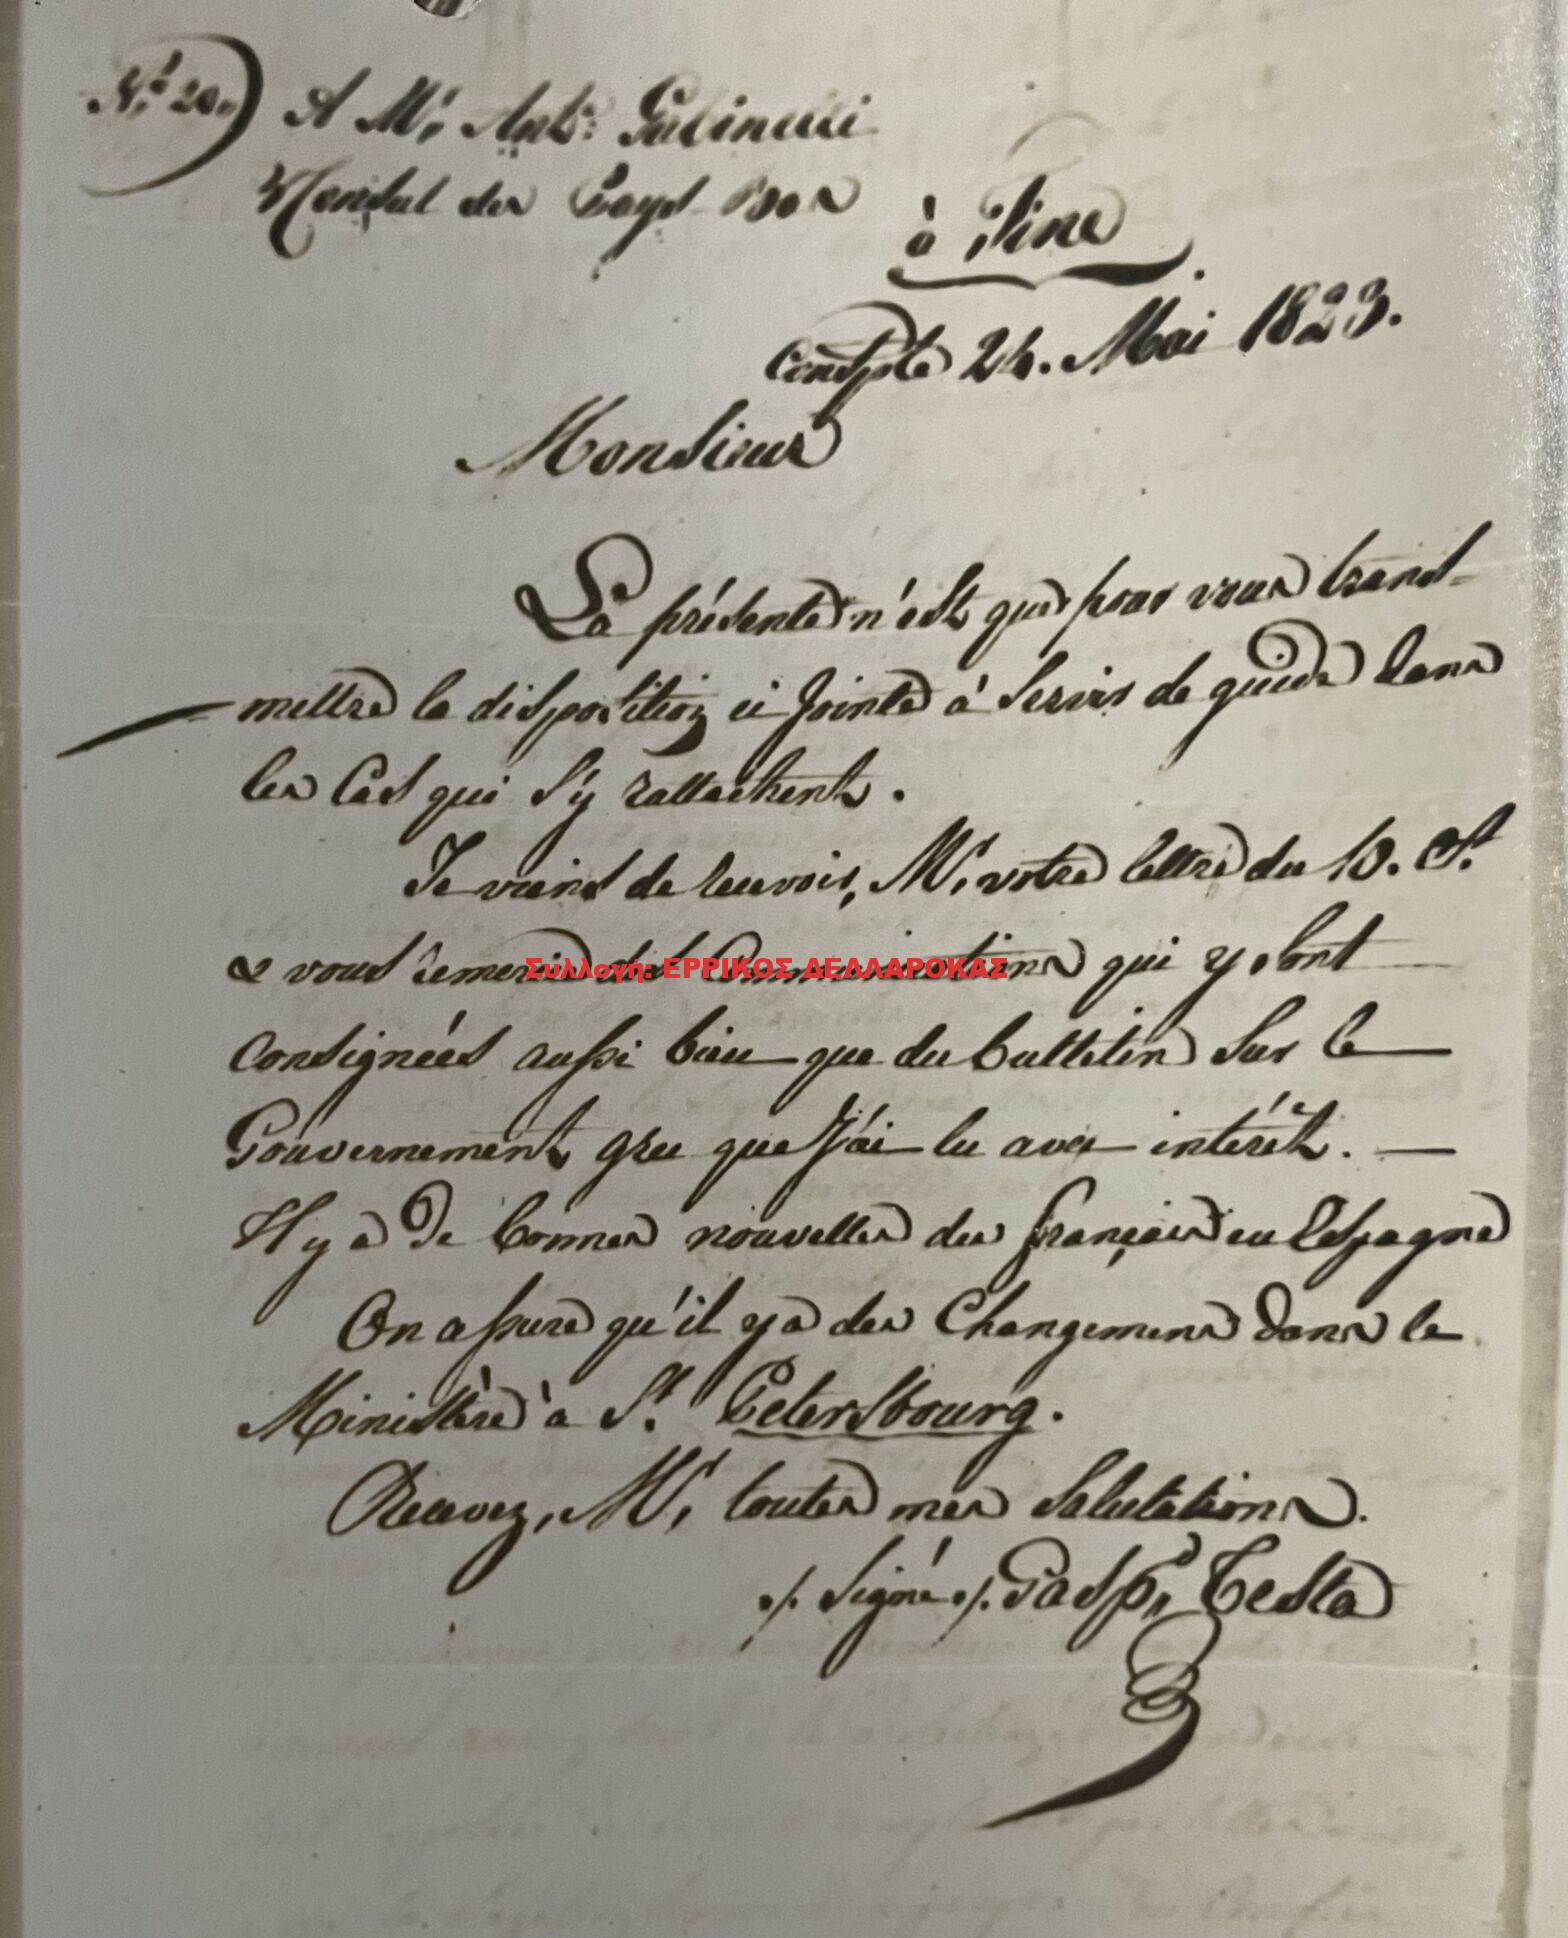 N.º 20.
A Mr. Ant.e Gabinelli
V Consul des Pays Bas
à Tine
Constple 24. Mai 1823.
Monsieur
La présente n'est que pour vous trans-
mettre la disposition ci jointe à servir de guide dans
les Cas qui s'y rattachent.
Je viens de recevoir, Mr, votre lettre du 10. Ct.
& vous remercie des Communications qui y sont
Συλλογή: ΕΡΡΙΚΟΣ ΔΕΛΛΑΡΟΚΑΣ
Consignées aussi bien que du bulletin Sur le
Gouvernement grec que j'ai lu avec intérêt. —
Il y a de bonnes nouvelles des français en Espagne
On assure qu'il y a des Changemens dans le
Ministère à St. Petersbourg.
Recevez, Mr, toutes mes Salutations.
./. Signé ./. Gaspd, Testa